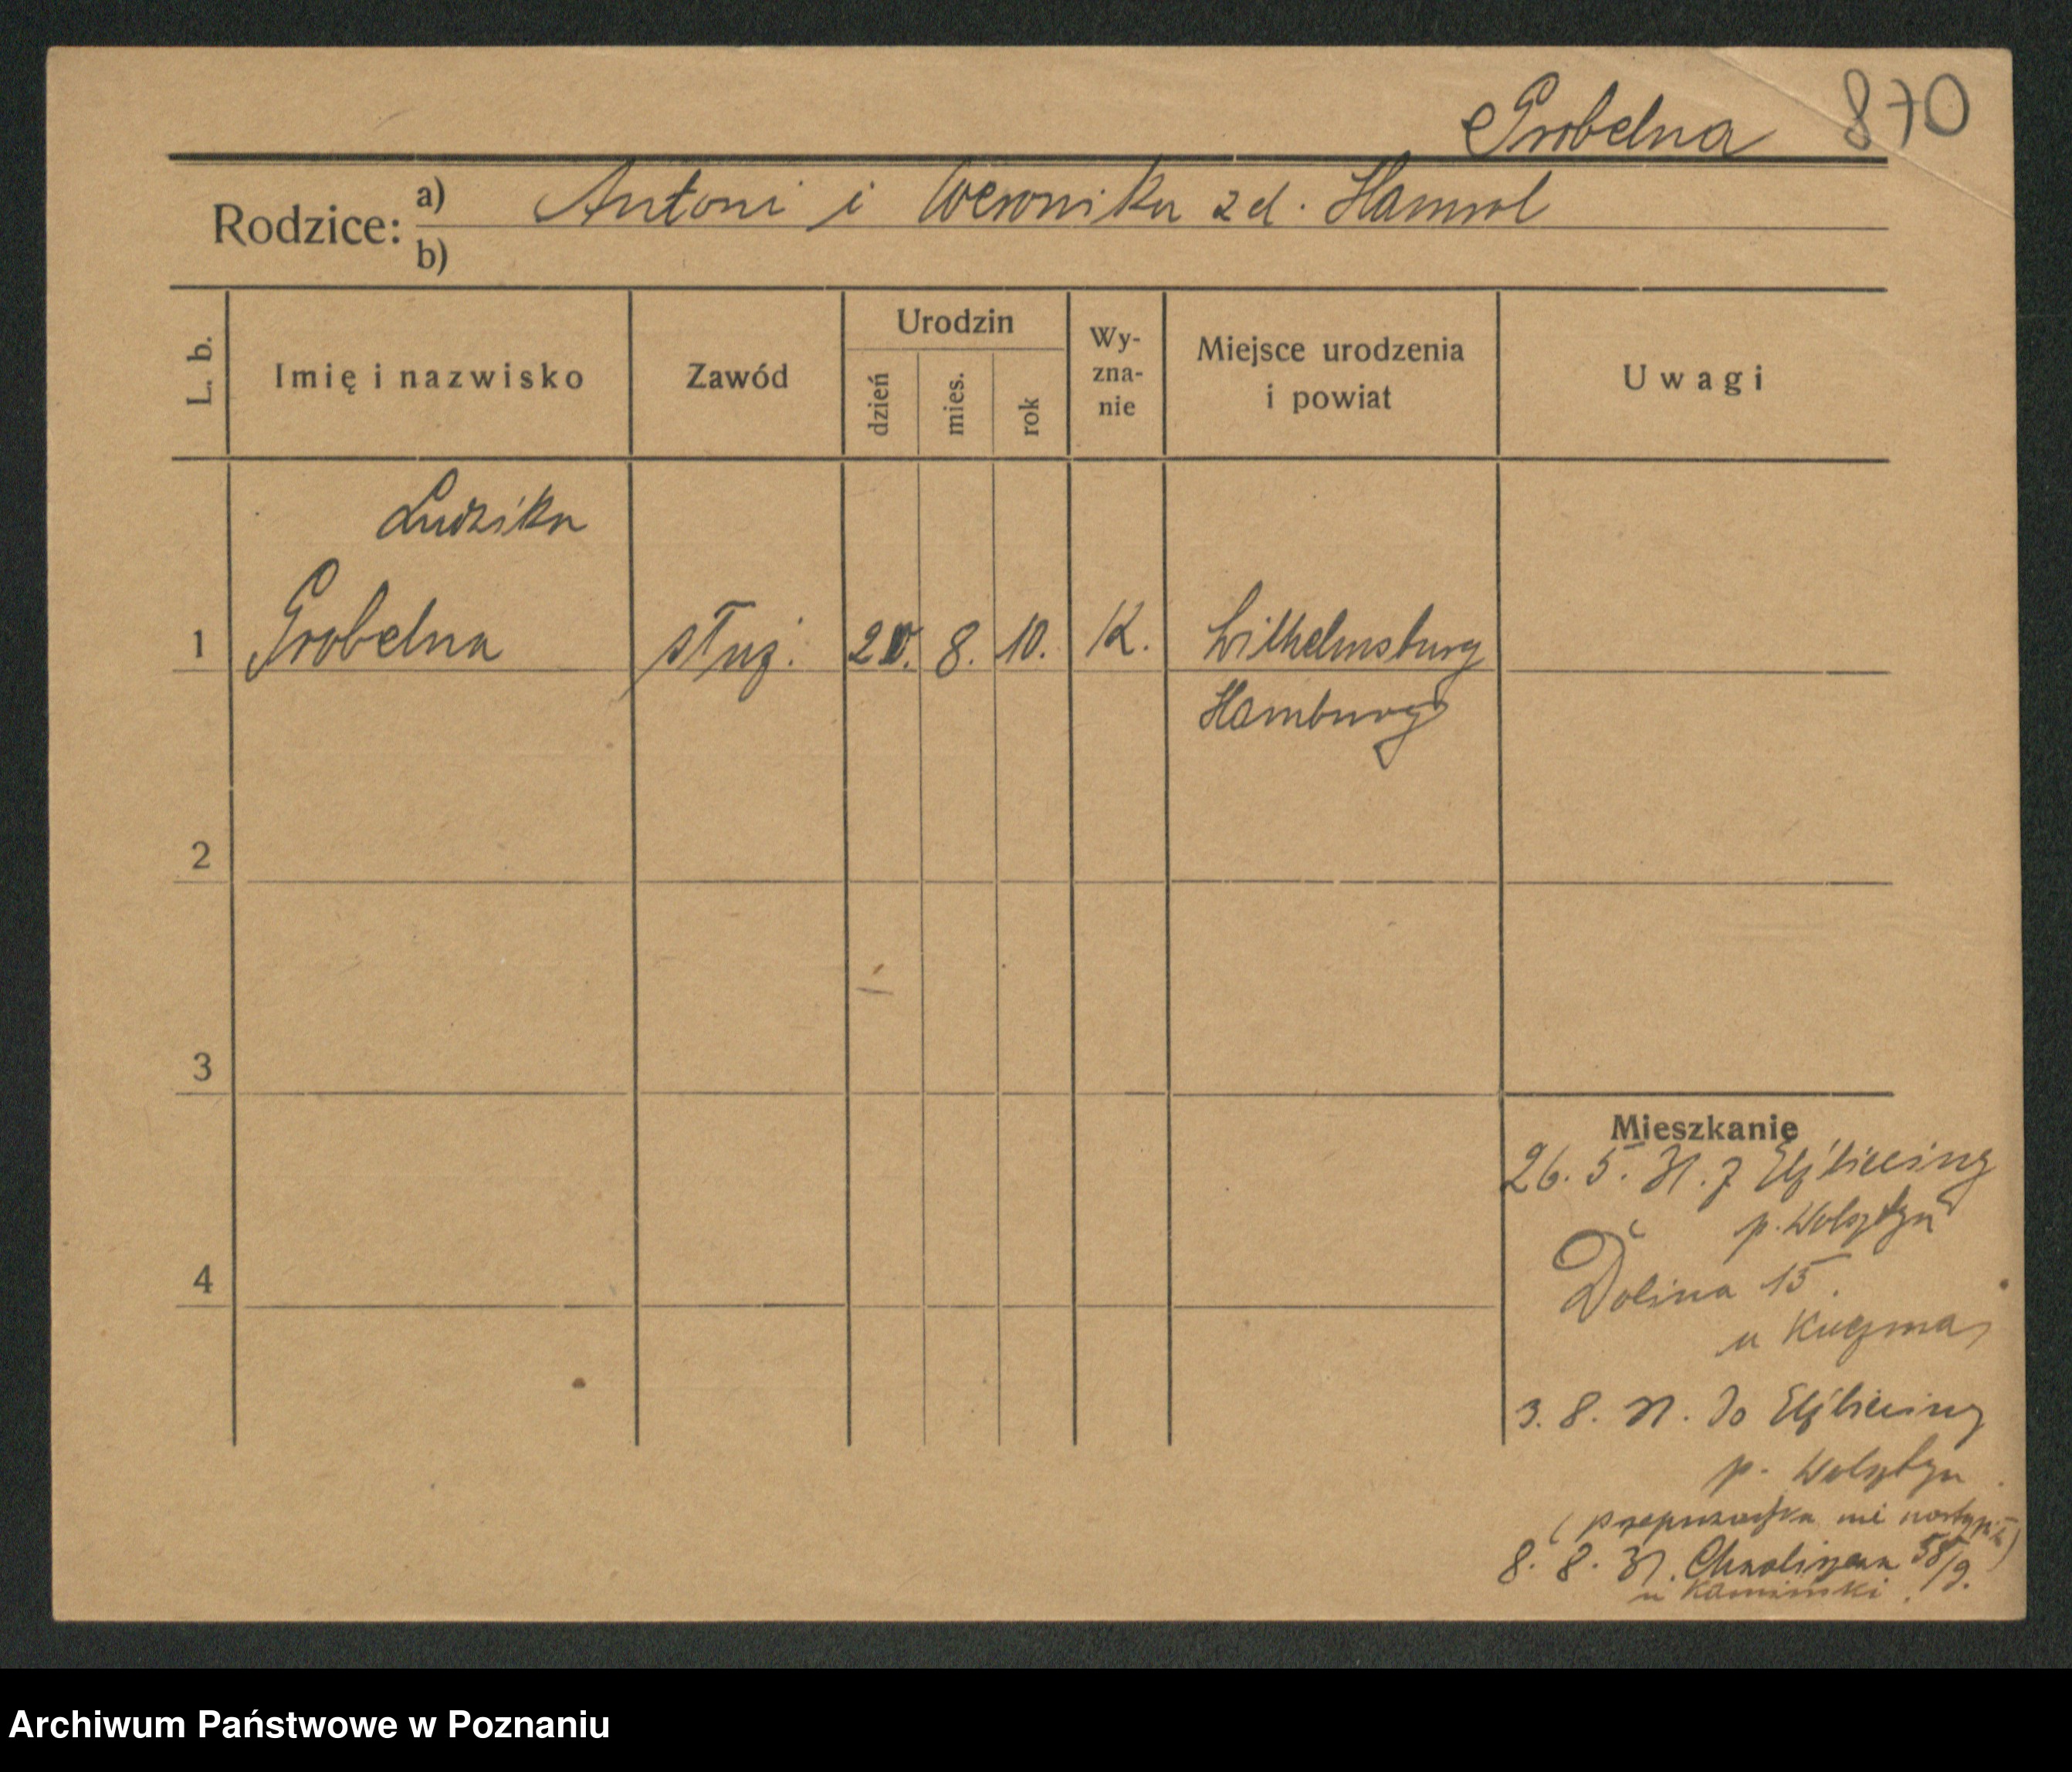 Grobelna 870
Rodzice: a) Antoni i Weronika zd. Hamrol
b)
L. b.
Imię i nazwisko
Zawód
Urodzin
dzień
mies.
rok
Wy-
zna-
nie
Miejsce urodzenia
i powiat
Uwagi
Ludzika
1 Grobelna służ. 8. 10. K. Wilhelmsburg
Hamburg
2
3
4
Mieszkanie
26. 5. 31. z
p. Wolsztyn
Dolina 15.
u Kuczma
3. 8. 31. do
p. Wolsztyn
( przeprowadzka nie nastąpiła)
8. 8. 31. 58/9.
u Kamiński
Archiwum Państwowe w Poznaniu